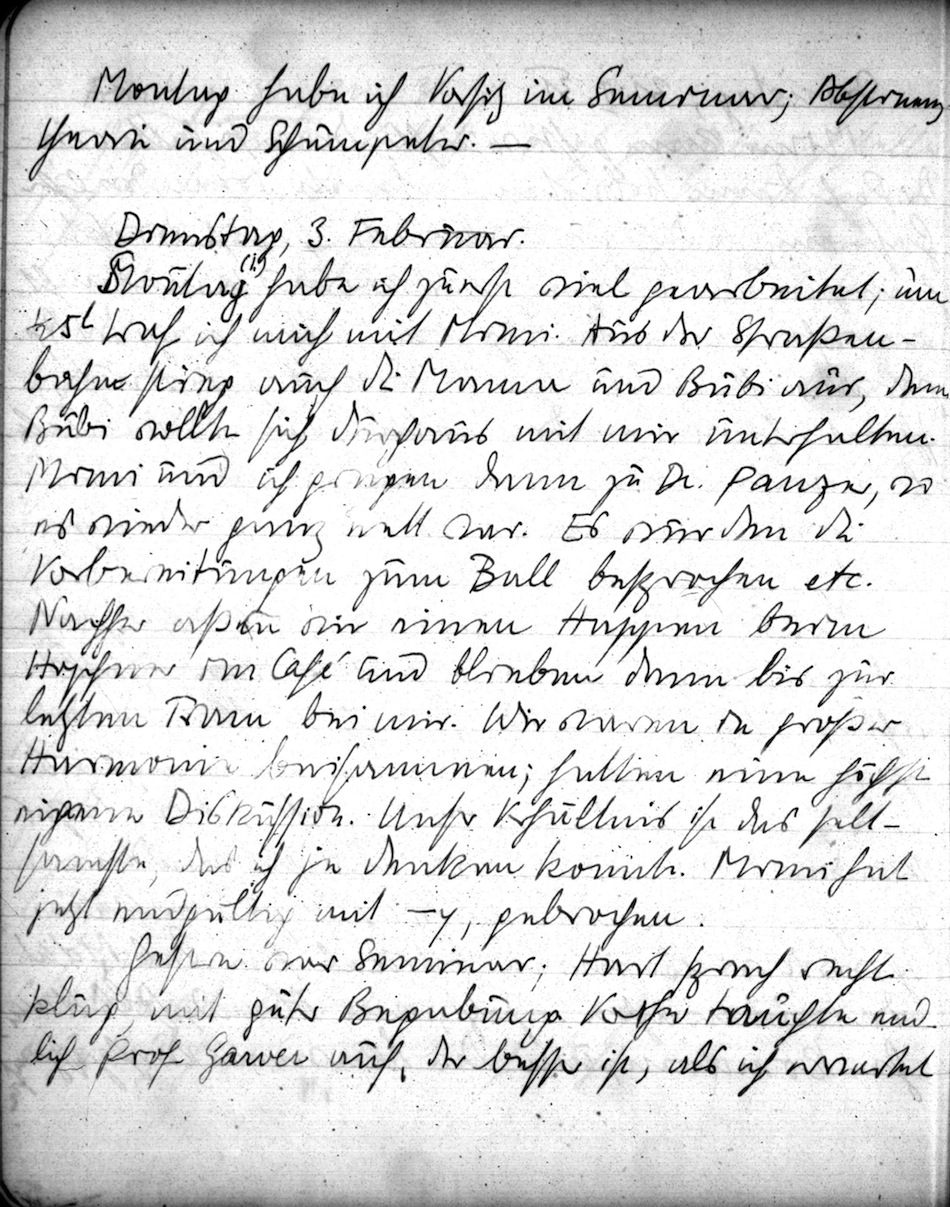 Montag habe ich Vorsitz im Seminar; Abstinenz
theorie und Schumpeter. —
Dienstag, 3. Februar.
Montag (?) habe ich zuerst viel gearbeitet; um
½5h traf ich mich mit Mimi. Aus der Straßen-
bahn stieg auch die Mama und Bubi aus, denn
Bubi wollte sich durchaus mit mir unterhalten.
Mimi und ich gingen dann zu Dr. Panzer, wo
es wieder ganz nett war. Es wurden die
Vorbereitungen zum Ball besprochen etc.
Nachher aßen wir einen Happen beim
im Café und blieben dann bis zur
letzten Tram bei mir. Wir waren in großer
Harmonie beisammen; hatten eine höchst
eigene Diskussion. Unser Verhältnis ist das selt-
samste, das ich je denken konnte. Mimi hat
jetzt endgültig mit —y, gebrochen.
Gestern war Seminar; Hart sprach recht
klug mit guter Begabung. Vorher tauchte end-
lich Prof. auch auf, der besser ist, als ich erwartet